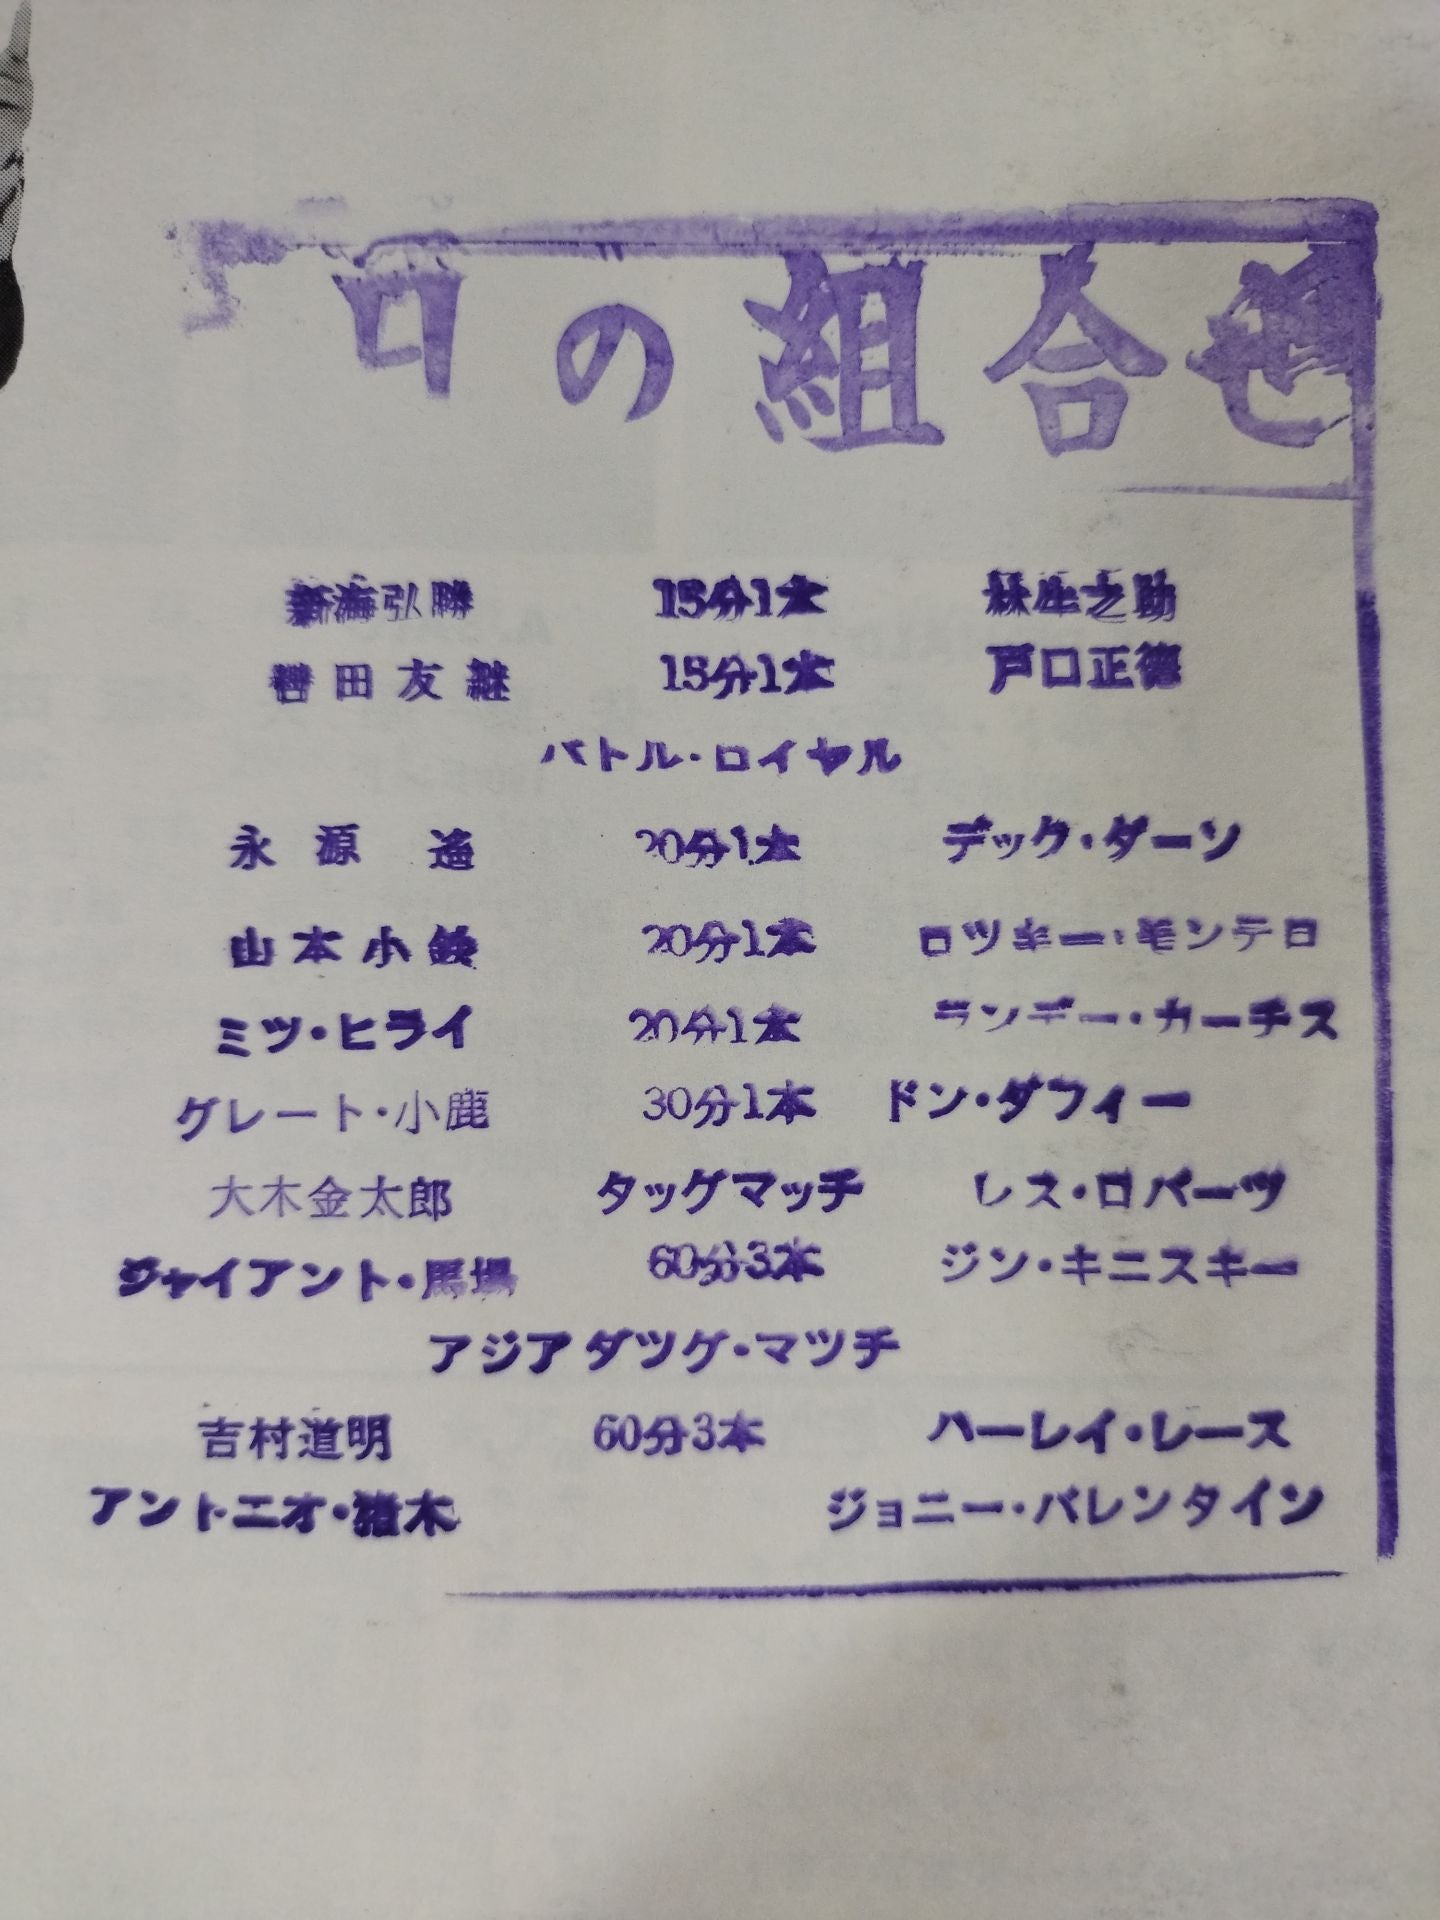 の組合せ
新海弘勝 15分1本 林牛之助
轡田友継 15分1本 戸口正徳
バトル・ロイヤル
永源遙 20分1本 デック・ダーソ
山本小鉄 20分1本 ロツキー・モンテロ
ミツ・ヒライ 20分1本 ランデー・カーチス
グレート・小鹿 30分1本 ドン・ダフィー
大木金太郎 タッグマッチ レス・ロバーツ
ジャイアント・馬場 60分3本 ジン・キニスキー
アジアタツグ・マツチ
吉村道明 60分3本 ハーレイ・レース
アントニオ・猪木 ジョニー・バレンタイン